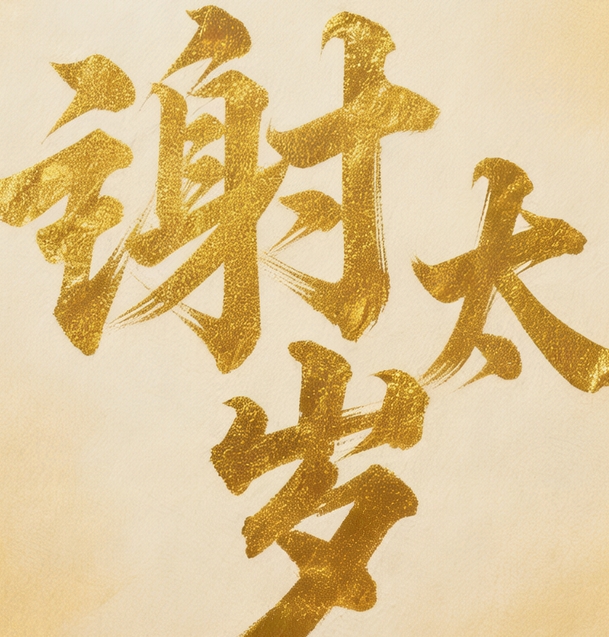 谢太岁